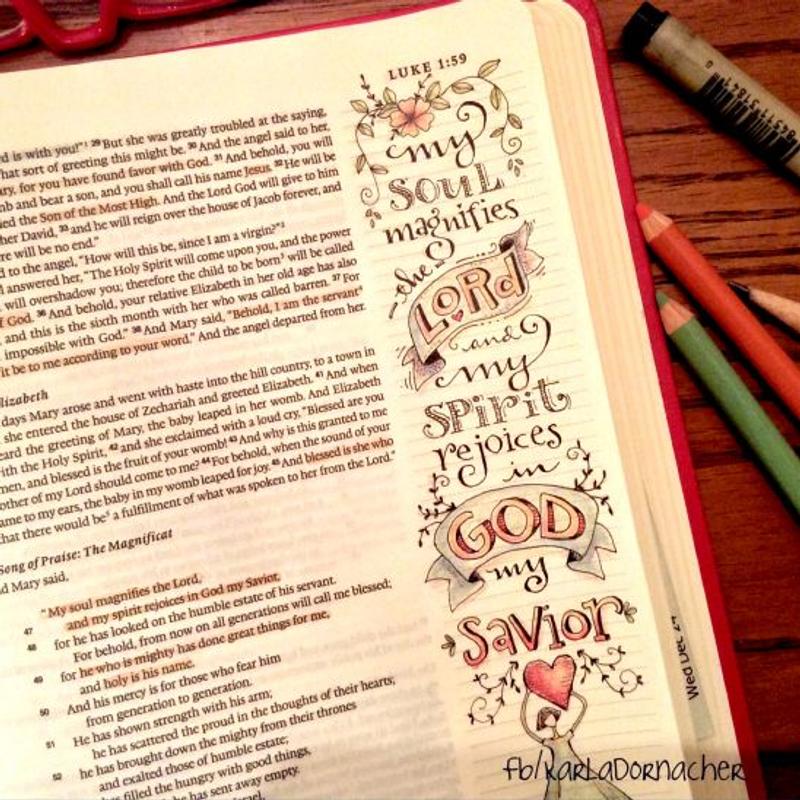 LUKE 1:59
my
SOUL
magnifies
the
LORD
and
my
SPirit
rejoices
in
GOD
my
Savior
rd is with you!" 29 But she was greatly troubled at the saying,
hat sort of greeting this might be. 30 And the angel said to her,
ary, for you have found favor with God. 31 And behold, you will
mb and bear a son, and you shall call his name Jesus. 32 He will be
led the Son of the Most High. And the Lord God will give to him
her David, 33 and he will reign over the house of Jacob forever, and
re will be no end."
d to the angel, "How will this be, since I am a virgin?"
answered her, "The Holy Spirit will come upon you, and the power
will overshadow you; therefore the child to be born will be called
f God. 36 And behold, your relative Elizabeth in her old age has also
, and this is the sixth month with her who was called barren. 37 For
impossible with God." 38 And Mary said, "Behold, I am the servant
it be to me according to your word." And the angel departed from her.
lizabeth
days Mary arose and went with haste into the hill country, to a town in
she entered the house of Zechariah and greeted Elizabeth. 41 And when
eard the greeting of Mary, the baby leaped in her womb. And Elizabeth
ith the Holy Spirit, 42 and she exclaimed with a loud cry, "Blessed are you
men, and blessed is the fruit of your womb! 43 And why is this granted to me
other of my Lord should come to me? 44 For behold, when the sound of your
ame to my ears, the baby in my womb leaped for joy. 45 And blessed is she who
that there would be a fulfillment of what was spoken to her from the Lord."
Song of Praise: The Magnificat
d Mary said,
"My soul magnifies the Lord,
47 and my spirit rejoices in God my Savior,
48 for he has looked on the humble estate of his servant.
For behold, from now on all generations will call me blessed;
49 for he who is mighty has done great things for me,
and holy is his name.
50 And his mercy is for those who fear him
from generation to generation.
51 He has shown strength with his arm;
he has scattered the proud in the thoughts of their hearts;
52 he has brought down the mighty from their thrones
and exalted those of humble estate;
has filled the hungry with good things,
he has sent away empty.
fb/karLaDornacher